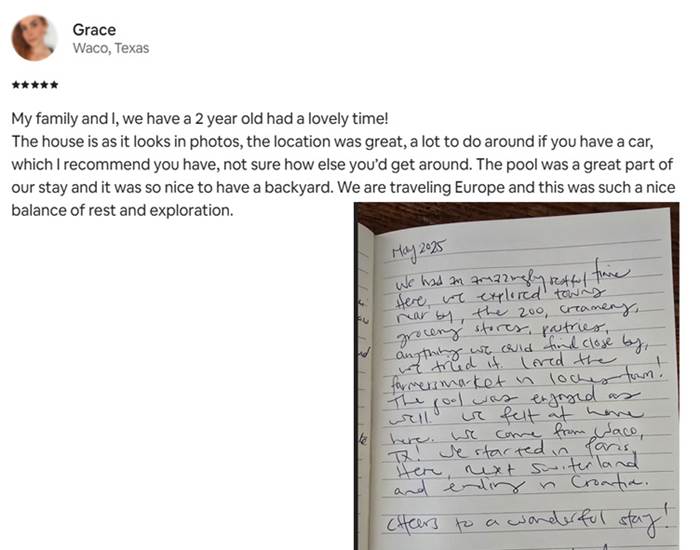 Grace
Waco, Texas
★★★★★
My family and I, we have a 2 year old had a lovely time!
The house is as it looks in photos, the location was great, a lot to do around if you have a car,
which I recommend you have, not sure how else you'd get around. The pool was a great part of
our stay and it was so nice to have a backyard. We are traveling Europe and this was such a nice
balance of rest and exploration.
May 2025
We had an amazingly restful time
here, we explored towns
near by, the zoo, creamery,
grocery stores, pastries,
anything we could find close by,
we tried it. Loved the
farmersmarket in loches town!
The pool was enjoyed as
well. We felt at home
here. We come from Waco,
TX! We started in Paris,
Here, next Switerland
and ending in Croatia.
Cheers to a wonderful stay!